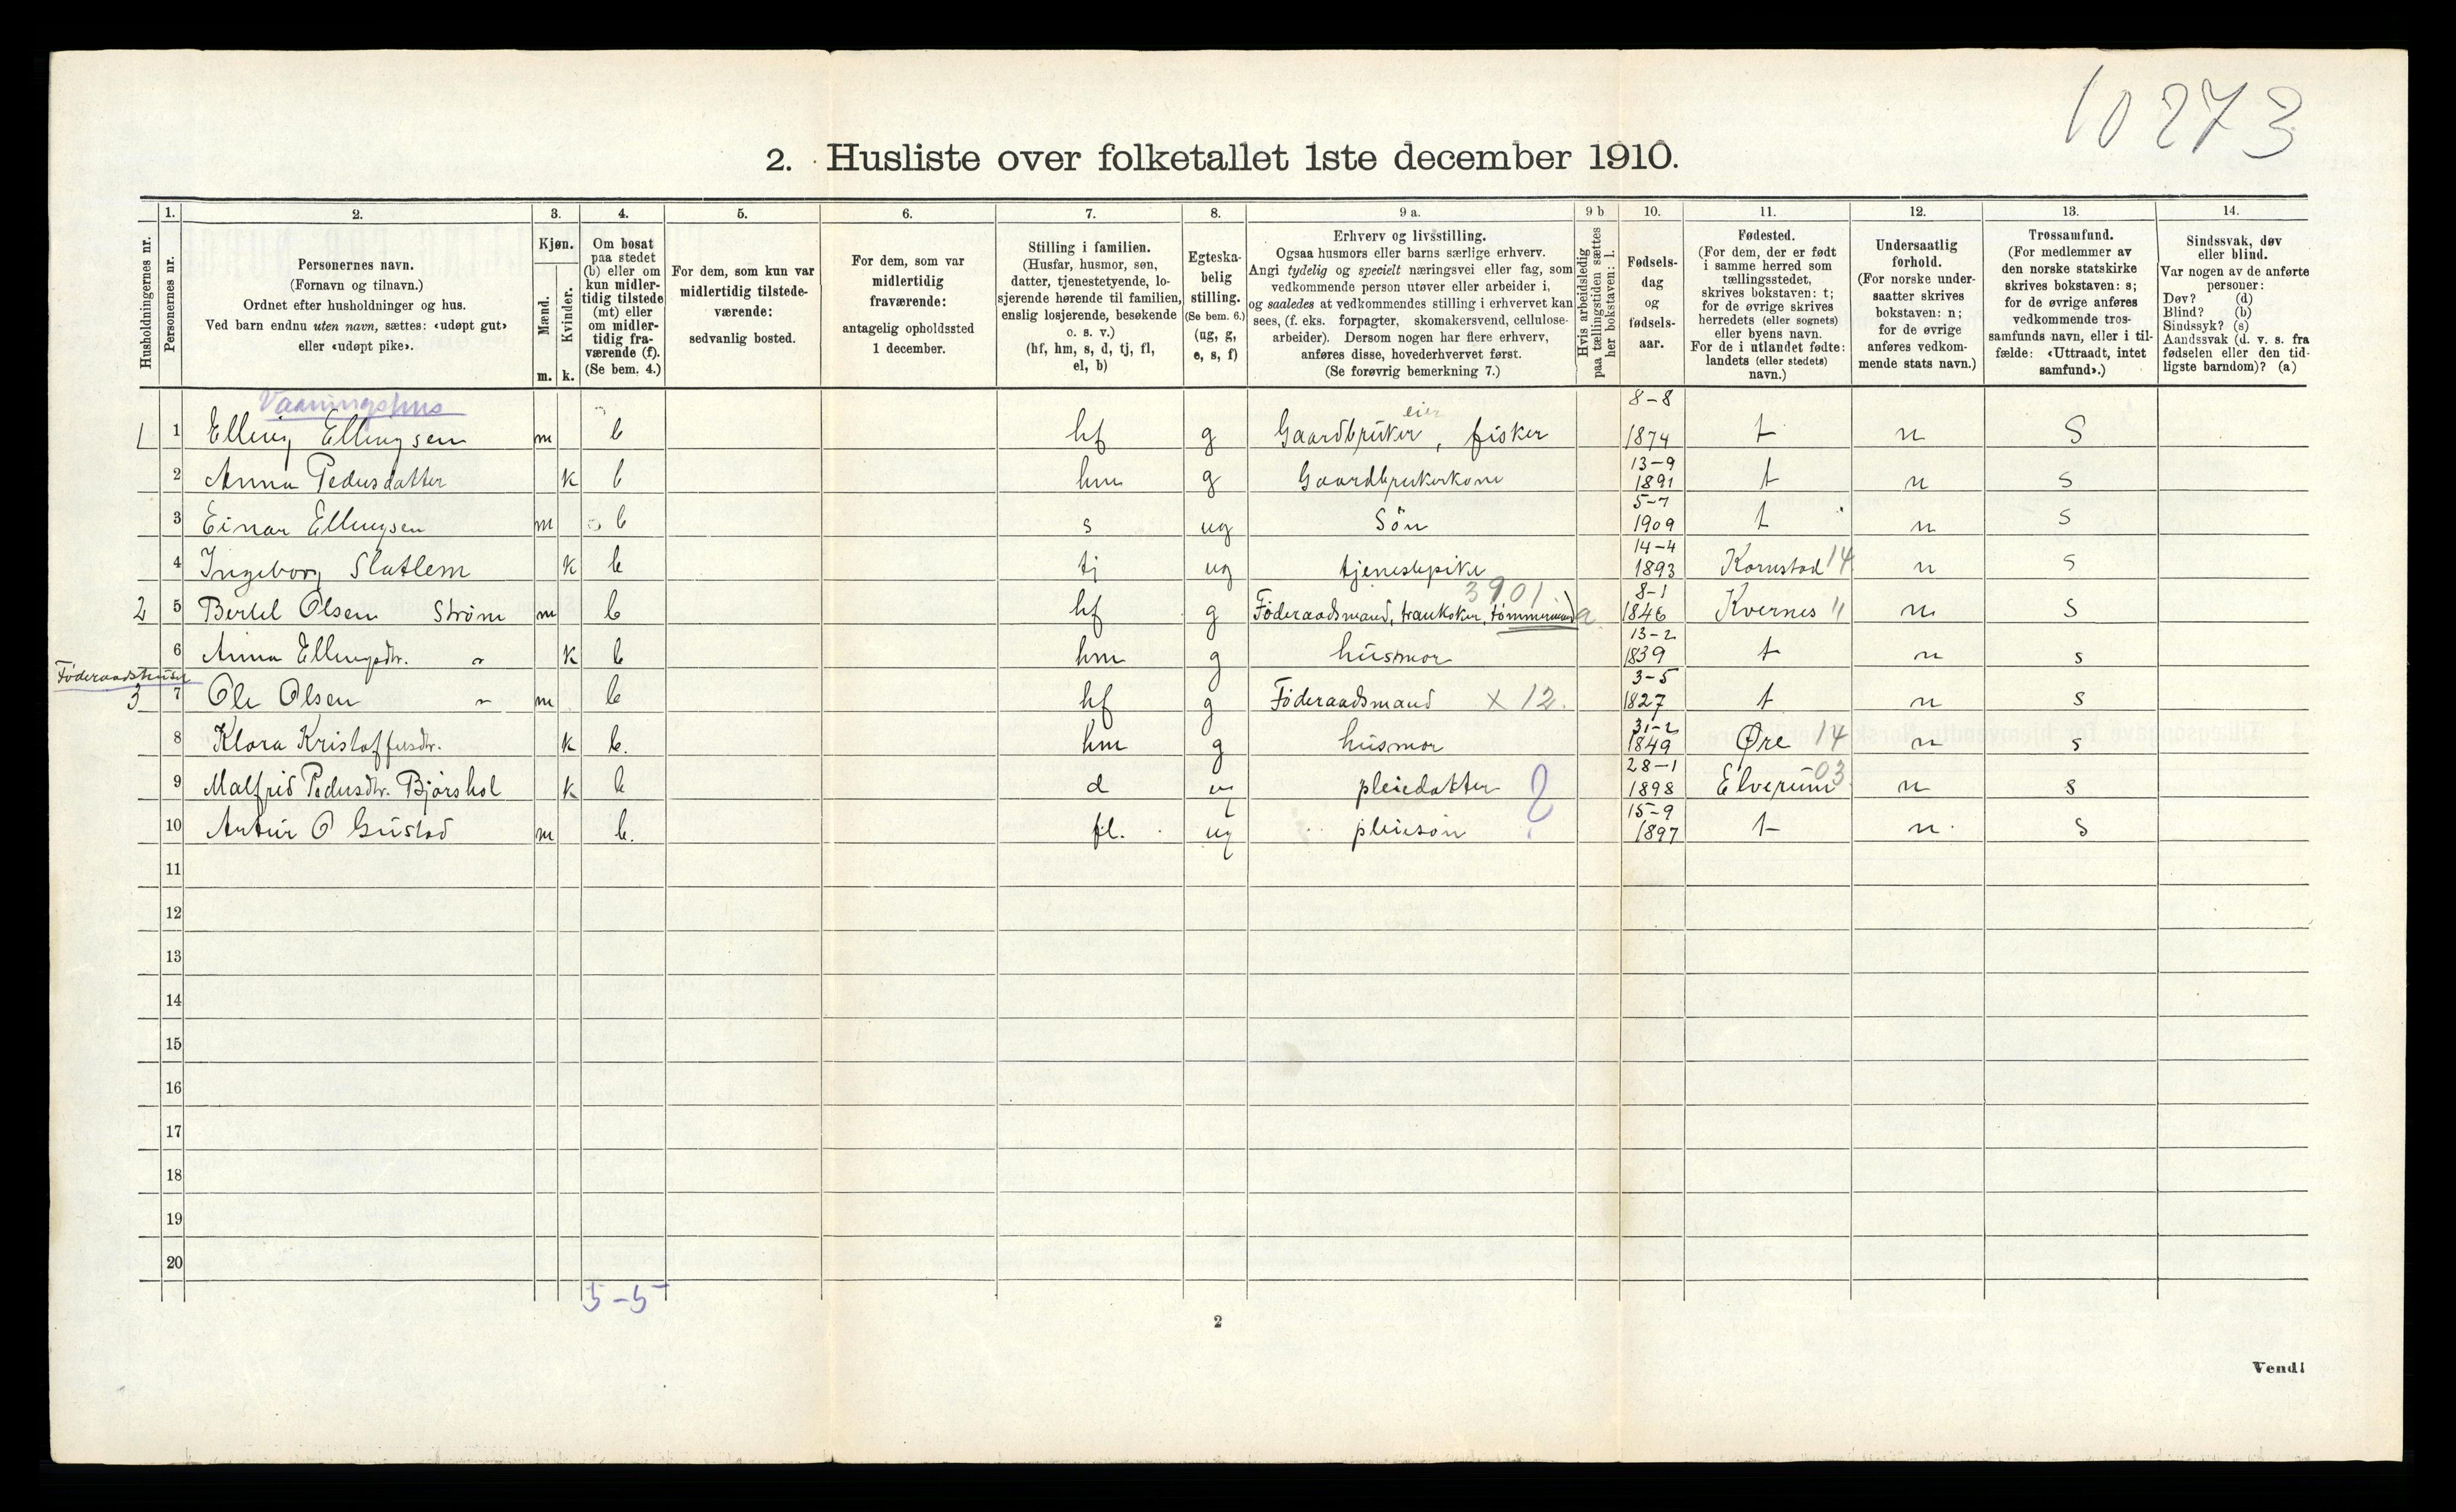 10273
2. Husliste over folketallet 1ste december 1910.
Husholdningernes nr.
1.
Personernes nr.
2.
Personernes navn.
(Fornavn og tilnavn.)
Ordnet efter husholdninger og hus.
Ved barn endnu uten navn, sættes: «udøpt gut»
eller «udøpt pike».
3.
Kjøn.
Mænd.
Kvinder.
m. k.
4.
Om bosat
paa stedet
(b) eller om
kun midler-
tidig tilstede
(mt) eller
om midler-
tidig fra-
værende (f).
(Se bem. 4.)
5.
For dem, som kun var
midlertidig tilstede-
værende:
sedvanlig bosted.
6.
For dem, som var
midlertidig
fraværende:
antagelig opholdssted
1 december.
7.
Stilling i familien.
(Husfar, husmor, søn,
datter, tjenestetyende, lo-
sjerende hørende til familien,
enslig losjerende, besøkende
o. s. v.)
(hf, hm, s, d, tj, fl,
el, b)
8.
Egteska-
belig
stilling.
(Se bem. 6.)
(ug, g,
e, s, f)
9 a.
Erhverv og livsstilling.
Ogsaa husmors eller barns særlige erhverv.
Angi tydelig og specielt næringsvei eller fag, som
vedkommende person utøver eller arbeider i,
og saaledes at vedkommendes stilling i erhvervet kan
sees, (f. eks. forpagter, skomakersvend, cellulose-
arbeider). Dersom nogen har flere erhverv,
anføres disse, hovederhvervet først.
(Se forøvrig bemerkning 7.)
9 b
Hvis arbeidsledig
paa tællingstiden sættes
her bokstaven: l.
10.
Fødsels-
dag
og
fødsels-
aar.
11.
Fødested.
(For dem, der er født
i samme herred som
tællingsstedet,
skrives bokstaven: t;
for de øvrige skrives
herredets (eller sognets)
eller byens navn.
For de i utlandet fødte:
landets (eller stedets)
navn.)
12.
Undersaatlig
forhold.
(For norske under-
saatter skrives
bokstaven: n;
for de øvrige
anføres vedkom-
mende stats navn.)
13.
Trossamfund.
(For medlemmer av
den norske statskirke
skrives bokstaven: s;
for de øvrige anføres
vedkommende tros-
samfunds navn, eller i til-
fælde: «Uttraadt, intet
samfund».)
14.
Sindssvak, døv
eller blind.
Var nogen av de anførte
personer:
Døv? (d)
Blind? (b)
Sindssyk? (s)
Aandssvak (d. v. s. fra
fødselen eller den tid-
ligste barndom)? (a)
Vaaningshus
1 1 Elling Ellingsen m b hf g Gaardbruker eier, fisker 8-8 1874 t n S
2 Anna Pedersdatter k b hm g Gaardbrukerkone 13-9 1891 t n s
3 Einar Ellingsen m b s ug Sön 5-7 1909 t n s
4 Ingeborg Slatlem k b tj ug tjenestepike 14-4 1893 Kornstad 14 n s
3901
2 5 Bertel Olsen Strøm m b hf g Föderaadsmand, trankoker, tømmermand a 8-1 1846 Kvernes " n s
6 Anna Ellingsdtr. " k b hm g husmor 13-2 1839 t n s
Föderaadshuset
3 7 Ole Olsen " m b hf g Föderaadsmand x 12. 3-5 1827 t n s
8 Klara Kristoffersdtr. k b. hm g husmor 31-2 1849 Øre 14 n s
9 Malfrid Pedersdtr. Bjørshol k b d u pleiedatter ? 28-1 1898 Elverum 03 n s
10 Artur O Gustad m b. fl. ug pleiesön 15-9 1897 t n s
11
12
13
14
15
16
17
18
19
20
5-5
2
Vend!